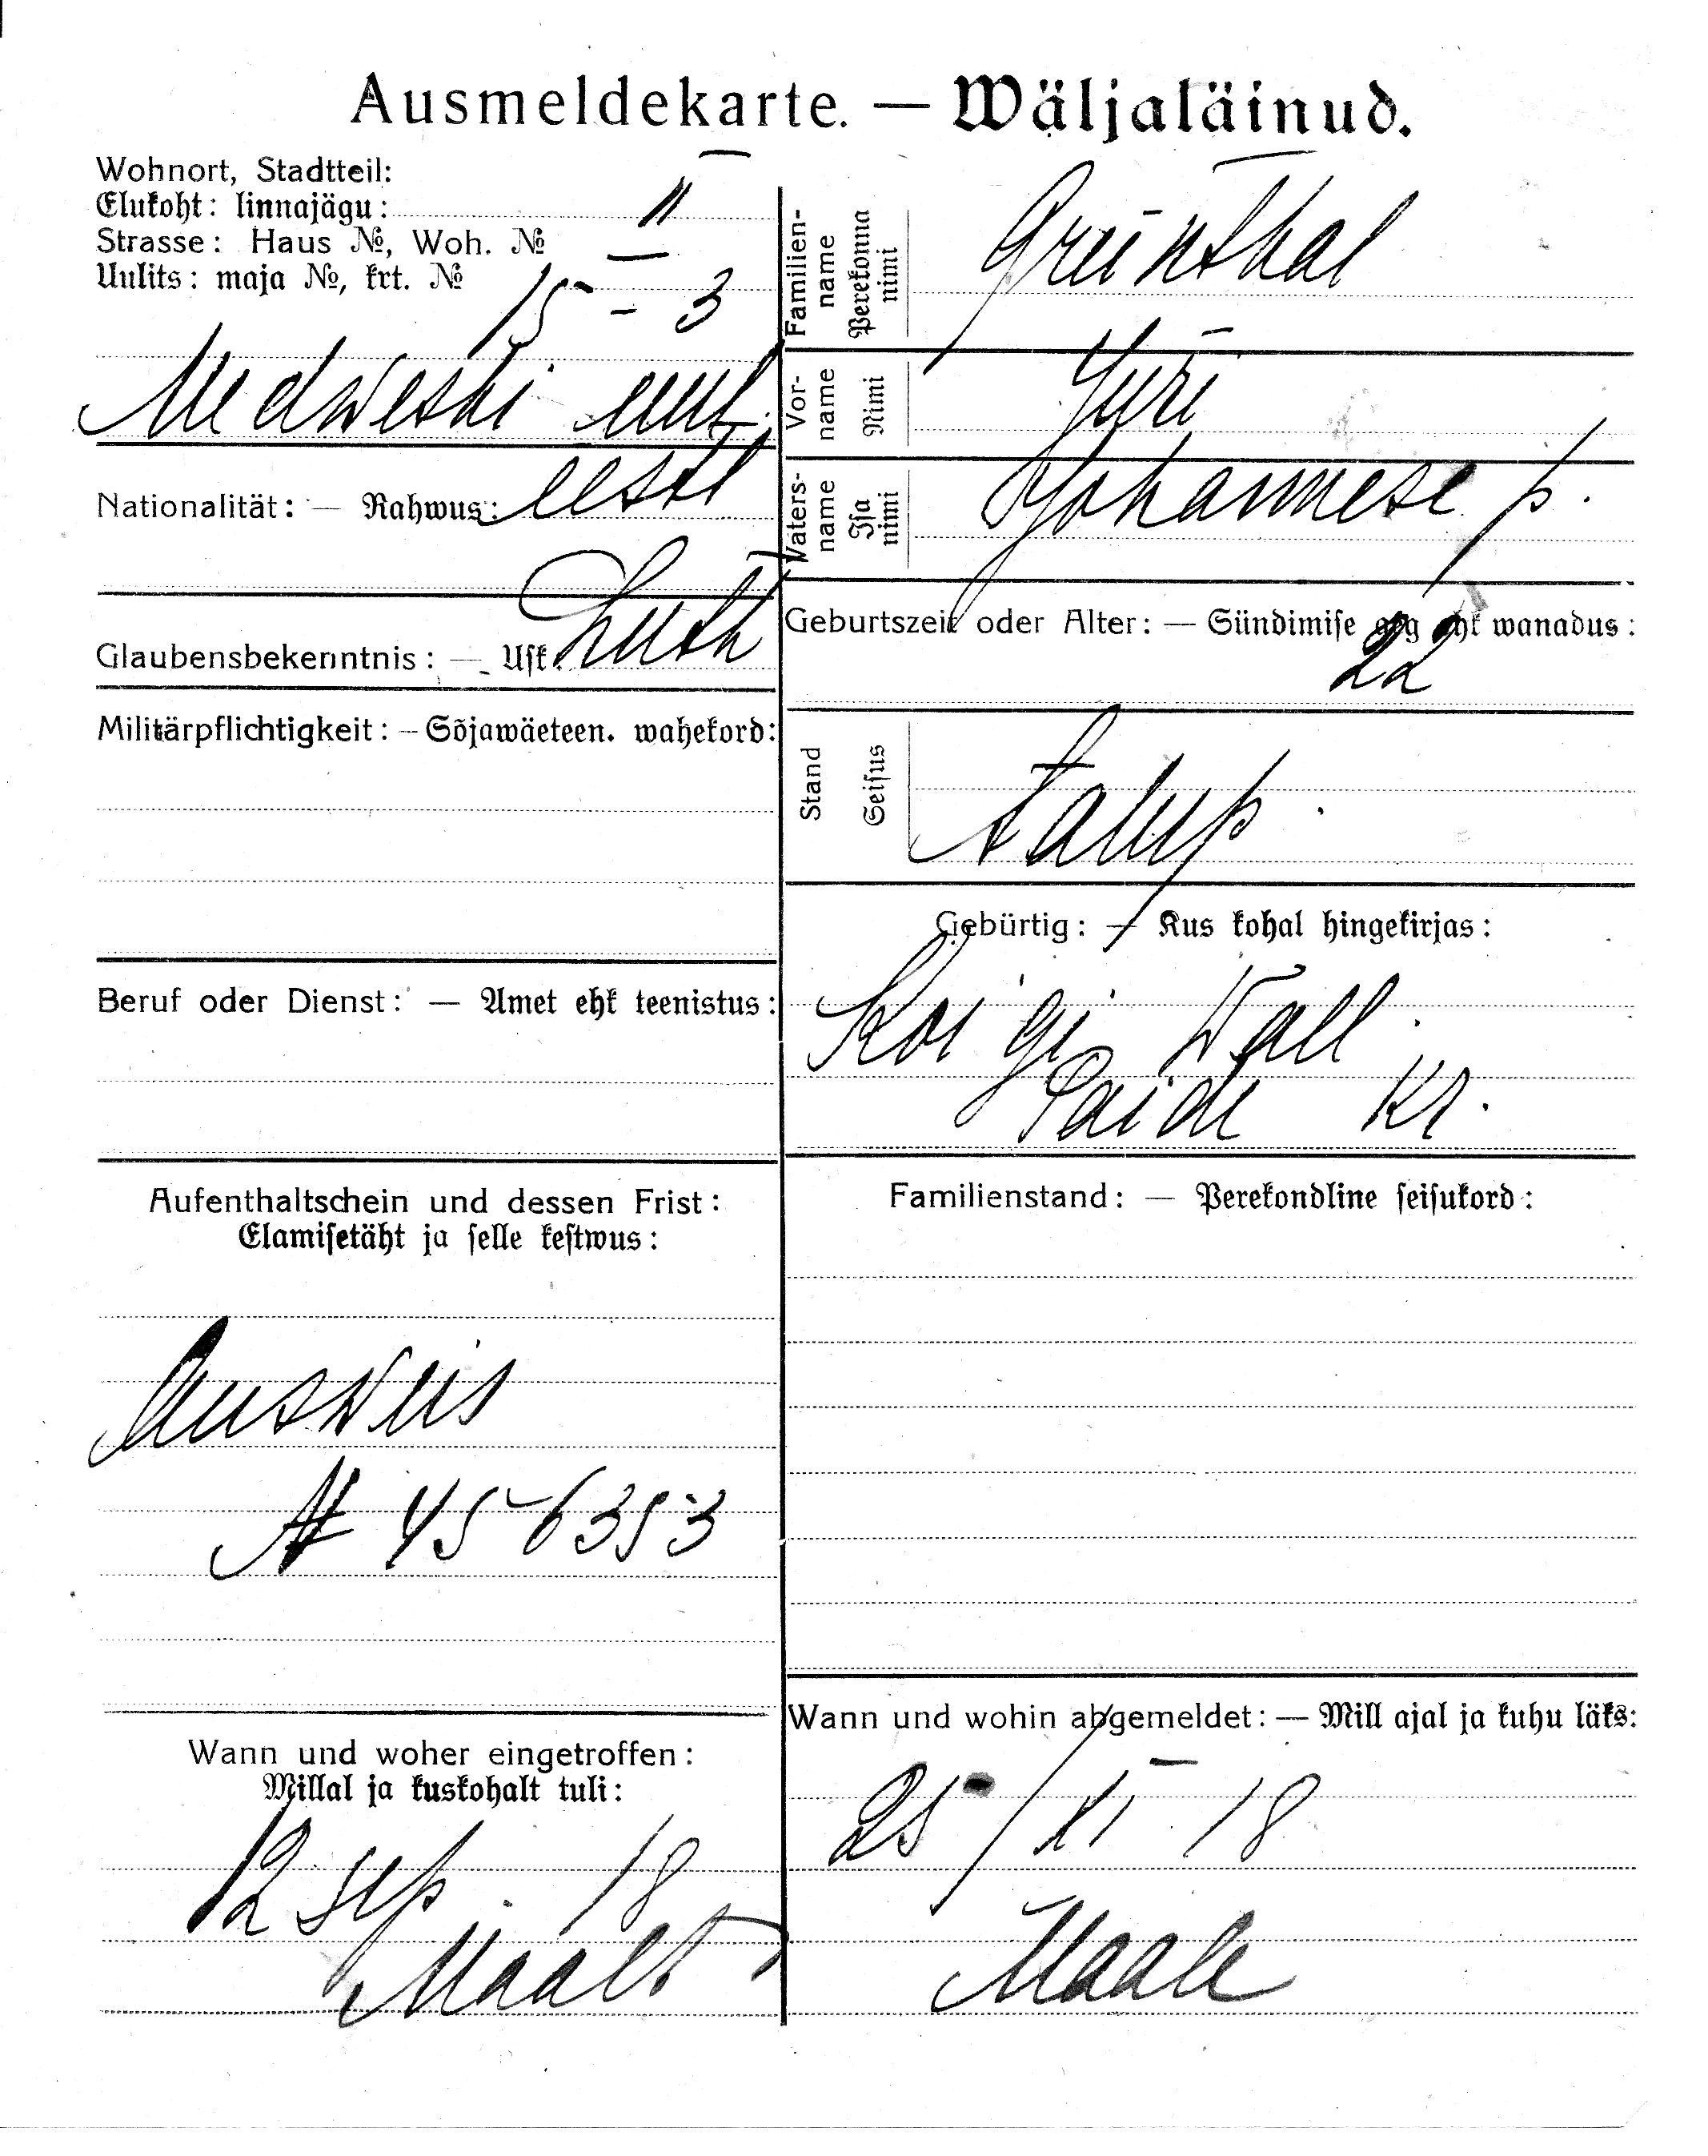 Ausmeldekarte. — Wäljaläinud.
Wohnort, Stadtteil:
Elukoht: linnajägu: II
Strasse: Haus №, Woh. №
Uulits: maja №, krt. № 15 - 3
Medweski uul.
Nationalität: — Rahwus: eesti
Glaubensbekenntnis: — Usk. Luth
Militärpflichtigkeit: — Sõjawäeteen. wahekord:
Beruf oder Dienst: — Amet ehk teenistus:
Aufenthaltschein und dessen Frist:
Elamisetäht ja selle kestwus:
Ausweis
№ 456353
Wann und woher eingetroffen:
Millal ja kuskohalt tuli:
12 sep. 18
Maalt
Familien-name Perekonna nimi Grünthal
Vor-name Nimi Jüri
Vaters-name Isa nimi Johannese p.
Geburtszeit oder Alter: — Sündimise aeg ehk wanadus:
22
Stand Seisus talup.
Gebürtig: — Kus kohal hingekirjas:
Koigi wall.
Paide kr.
Familienstand: — Perekondline seisukord:
Wann und wohin abgemeldet: — Mill ajal ja kuhu läks:
25/XI 18
Maale